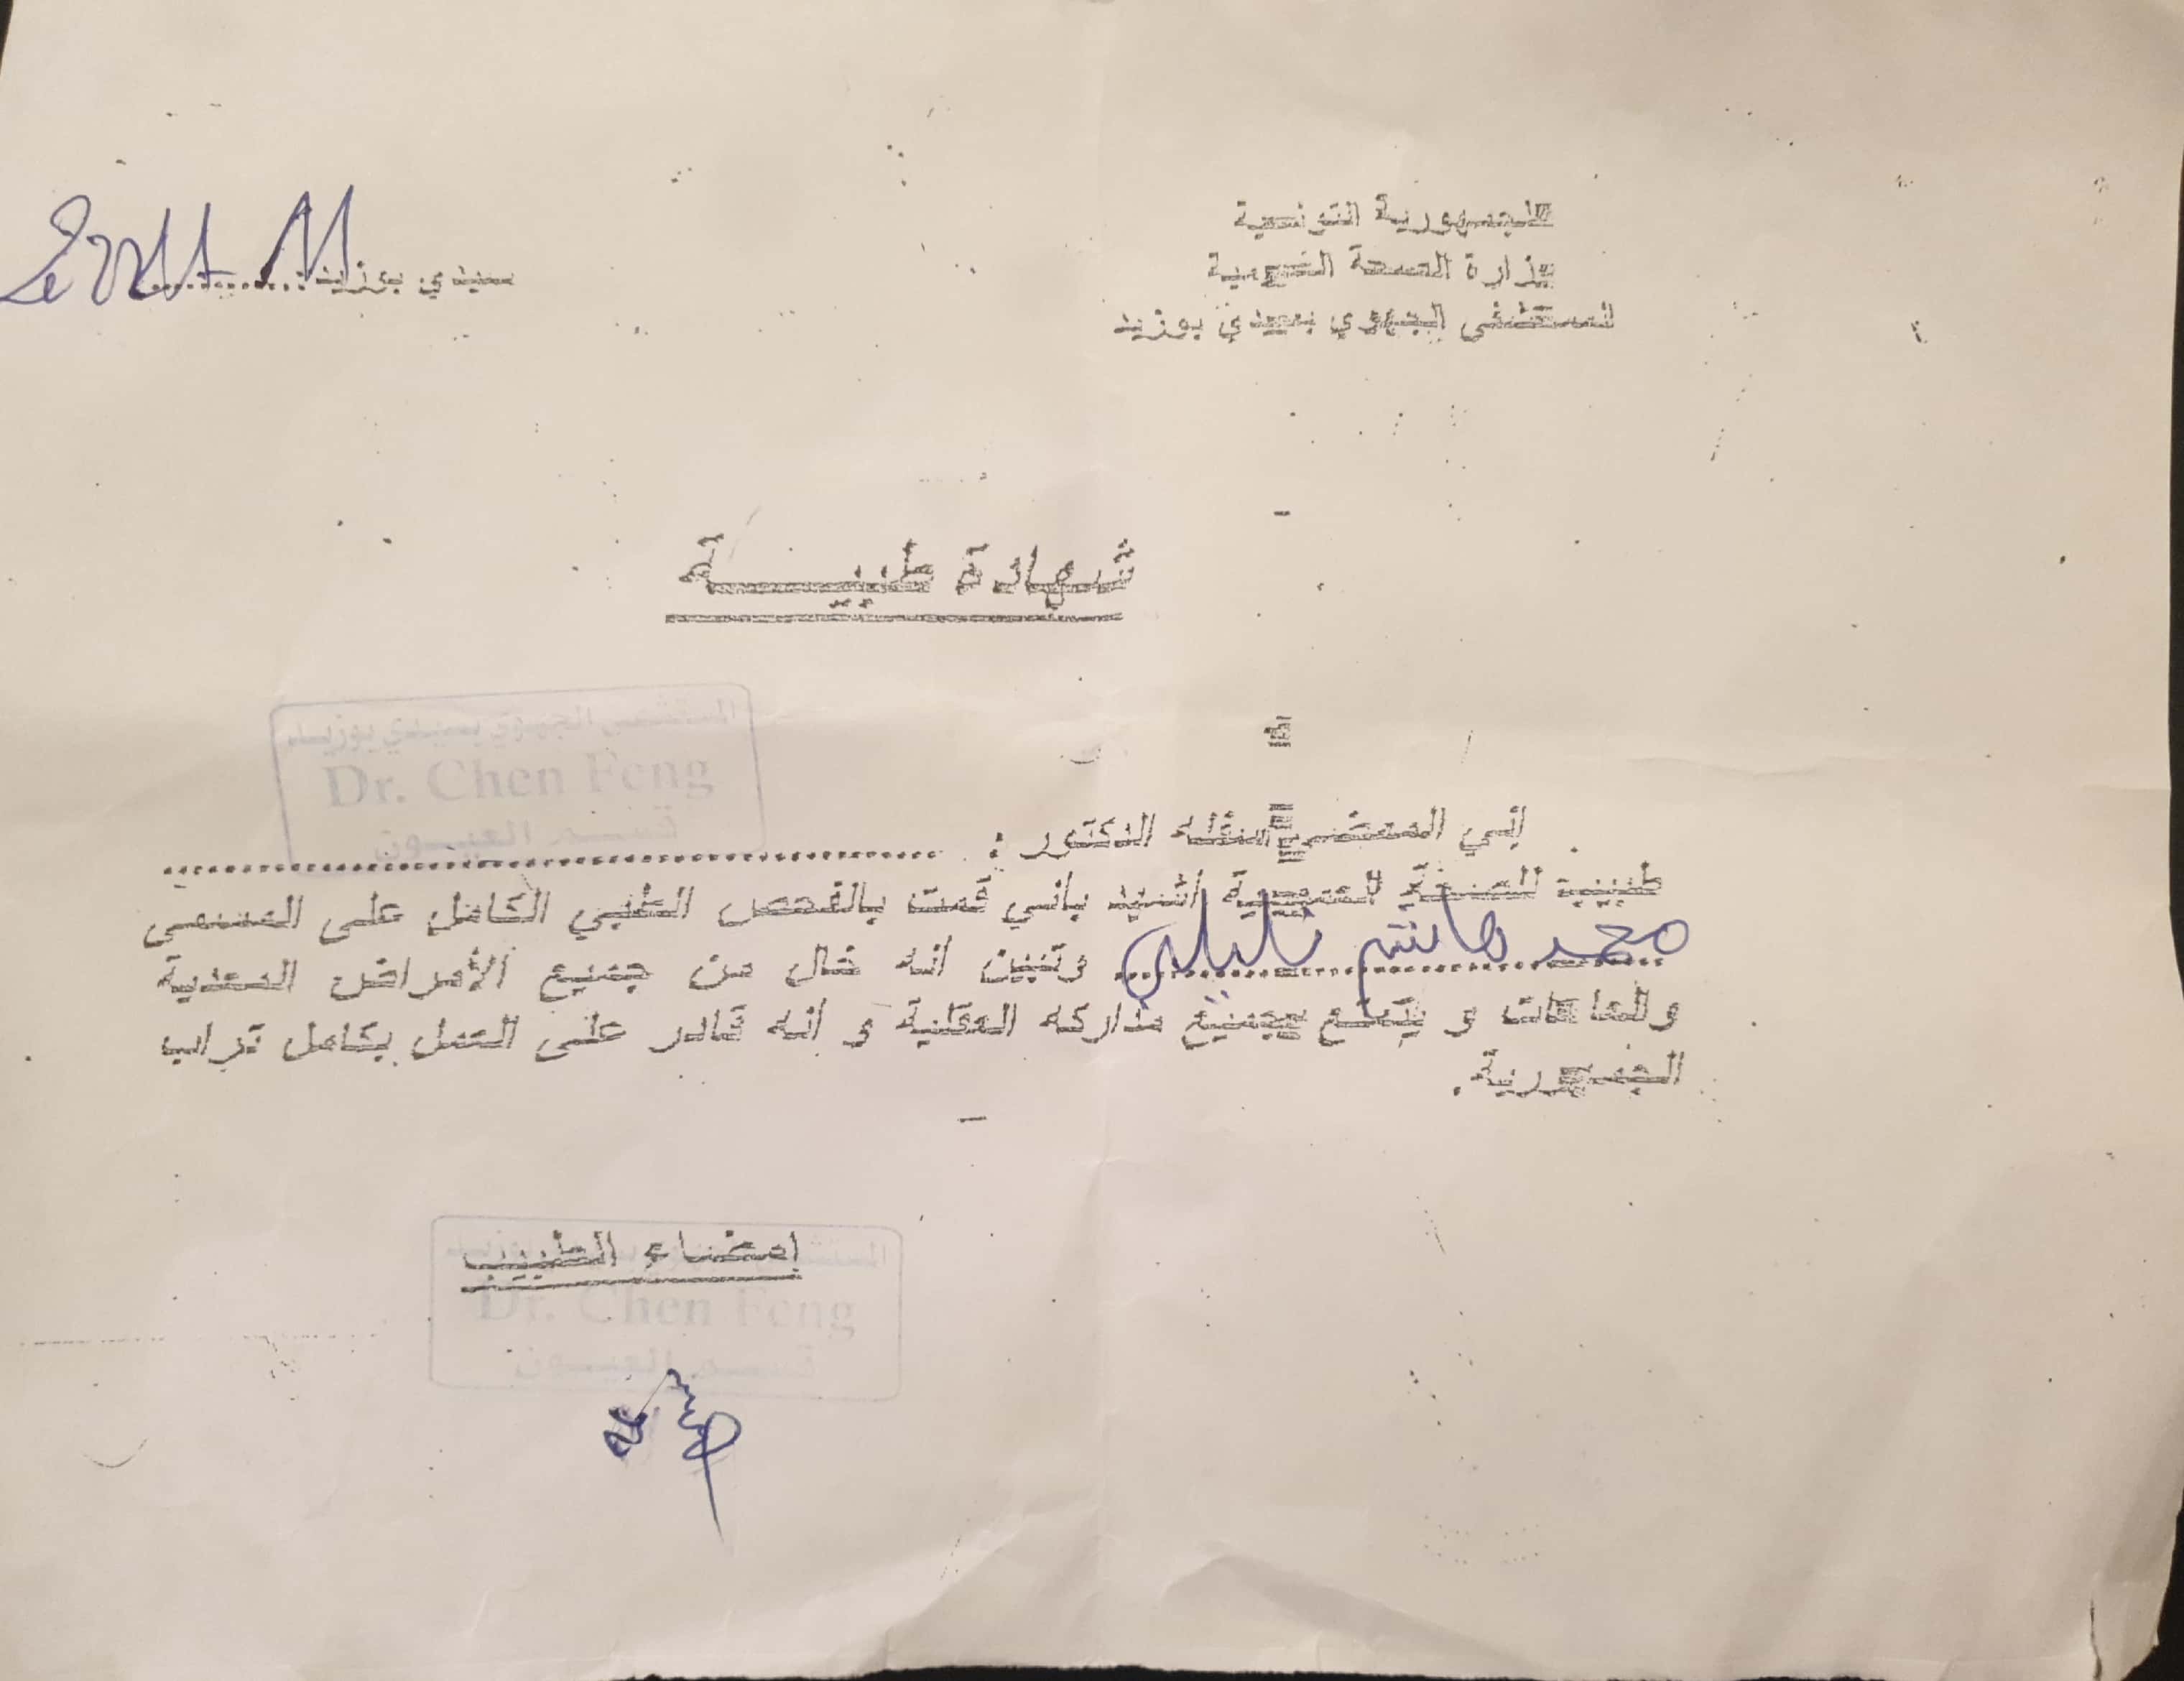 الجمهورية التونسية
وزارة الصحة العمومية
المستشفى الجهوي بسيدي بوزيد
سيدي بوزيد
شهادة طبيـــــة
المستشفى الجهوي بسيدي بوزيد
Dr. Chen Feng
قسم العيون
إني الممضي أسفله الدكتور :
طبيب للصحة العمومية أشهد بأني قمت بالفحص الطبي الكامل على المسمى
محمد هاشم وتبين انه خال من جميع الأمراض المعدية
والعاهات و يتمتع بجميع مداركه العقلية و انه قادر على العمل بكامل تراب
الجمهورية.
إمضاء الطبيب
Dr. Chen Feng
قسم العيون